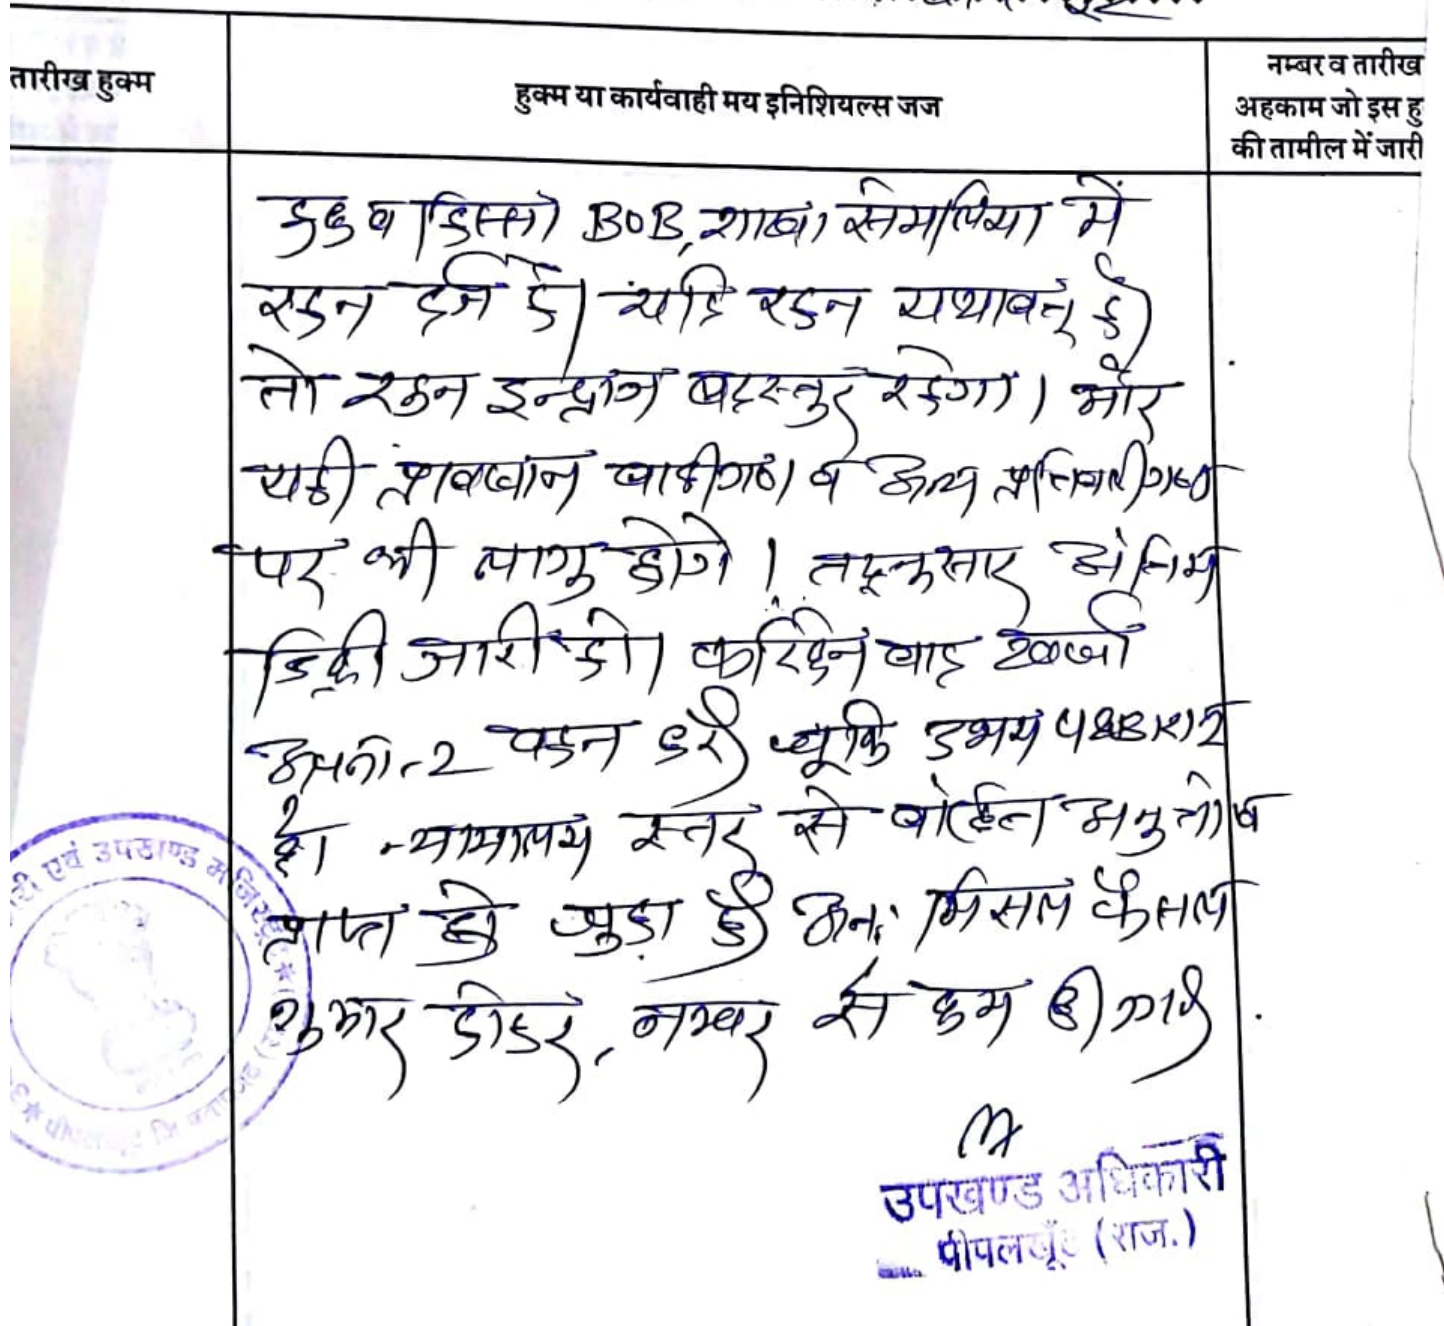 तारीख हुक्म
हुक्म या कार्यवाही मय इनिशियल्स जज
नम्बर व तारीख
अहकाम जो इस हु
की तामील में जारी
व हिस्सा BOB, शाखा सेमलिया में
रहन दर्ज है। यदि रहन यथावत् है
तो रहन इन्द्राज बदस्तुर रहेगा। और
यही प्रावधान वादीगण व अन्य प्रतिवादीगण
पर भी लागु होगे। तद्नुसार अंतिम
डिक्री जारी हो। फरिकेन वाद खर्चा
अपना-2 वहन करें चूंकि उभय पक्षकार
को न्यायालय स्तर से वांछित अनुतोष
प्राप्त हो चुका है अतः मिसल फैसल
शुमार होकर, नम्बर से कम की गई
उपखण्ड अधिकारी
पीपलखूँट (राज.)
एवं उपखण्ड मजिस्ट्रेट